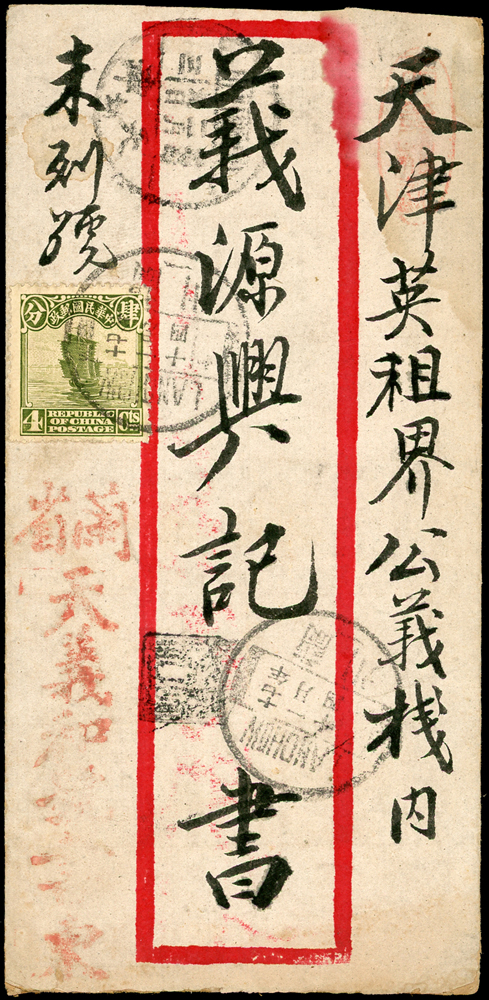 天津英租界公義棧内
義源興記 書
未列號
中華民國郵政
肆 分
4 Cts
REPUBLIC
OF CHINA
POSTAGE
LANCHOW
LANCHOW
蘭省
天義和